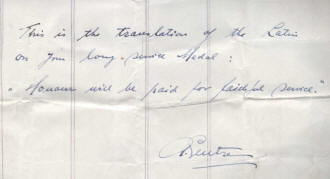 This is the translation of the Latin
on your long-service Medal:
"Honour will be paid for faithful service."